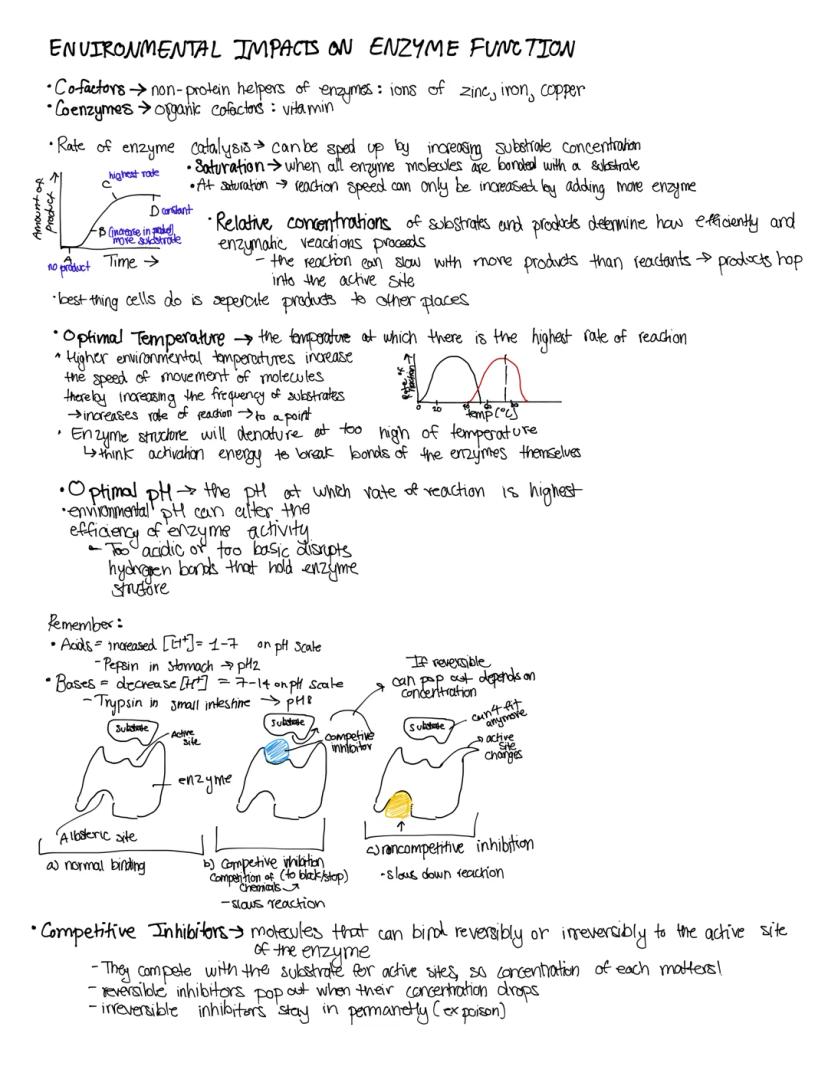 ENVIRONMENTAL IMPACTS ON ENZYME FUNCTION
• Cofactors → non-protein helpers of enzymes : ions of zinc, iron, copper
• Coenzymes → organic cofactors : vitamin
• Rate of enzyme catalysis → can be sped up by increasing substrate concentration
• Saturation → when all enzyme molecules are bonded with a substrate
• At saturation → reaction speed can only be increased by adding more enzyme
Amount of Product
highest rate
C
D constant
B (increase in product) more substrate
A
no product
Time →
• Relative concentrations of substrates and products determine how efficiently and
enzymatic reactions proceeds
- the reaction can slow with more products than reactants → products hop
into the active site
• best thing cells do is seperate products to other places
• Optimal Temperature → the temperature at which there is the highest rate of reaction
• Higher environmental temperatures increase
the speed of movement of molecules
thereby increasing the frequency of substrates
→ increases rate of reaction → to a point
Rate of reaction
0
Temp (°C)
• Enzyme structure will denature at too high of temperature
↳ think activation energy to break bonds of the enzymes themselves
• Optimal pH → the pH at which rate of reaction is highest
• environmental pH can alter the
efficiency of enzyme activity
- Too acidic or too basic disrupts
hydrogen bonds that hold enzyme
struture
Remember :
• Acids = increased [H+] = 1-7 on pH scale
- Pepsin in stomach → pH2
• Bases = decrease [H+] = 7-14 on pH scale
- Trypsin in small intestine → pH8
If reversible
can pop out depends on
concentration
Substrate
Active site
enzyme
Allosteric site
a) normal binding
Substrate
Competive inhibitor
b) Competive inhibition
Competition of (to block/stop)
Chemicals
- slows reaction
Substrate
can't fit anymore
active site changes
c) noncompetitive inhibition
- slows down reaction
• Competitive Inhibitors → molecules that can bind reversibly or irreversibly to the active site
of the enzyme
- They compete with the substrate for active sites, so concentration of each matters!
- reversible inhibitors pop out when their concentration drops
- irreversible inhibitors stay in permanetly (ex poison)